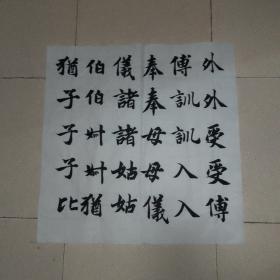 外外受受傅
傅訓訓入入
奉奉母母儀
儀諸諸姑姑
伯伯叔叔猶
猶子子子比